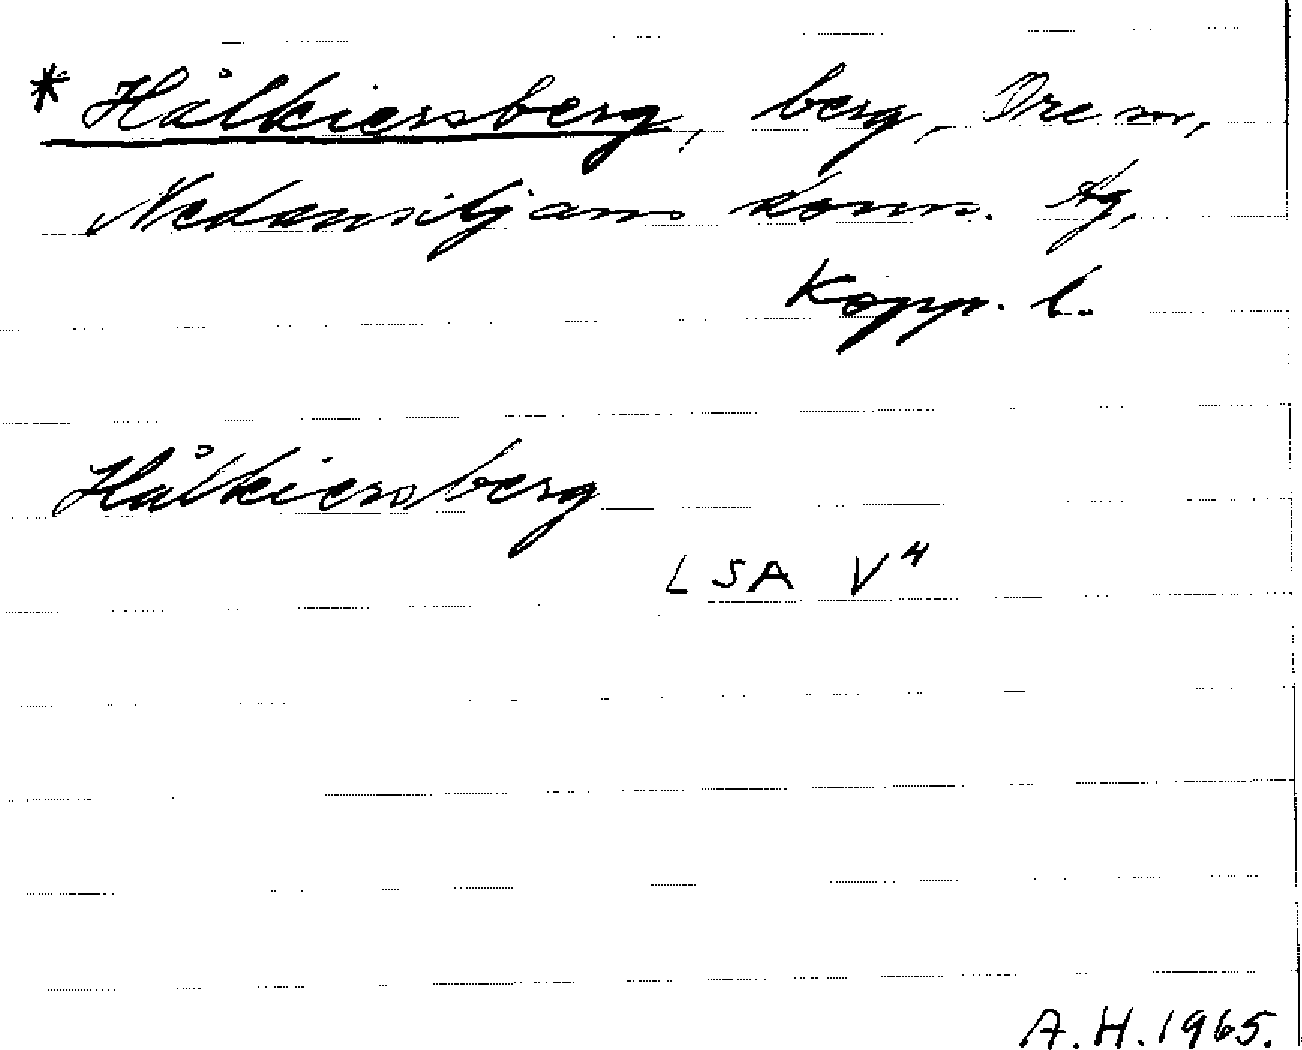 * Hålkiersberg, berg, Ore sn,
Nedansiljans doms. tg,
Kopp. l.
Hålkiersberg
LSA V⁴
A.H.1965.